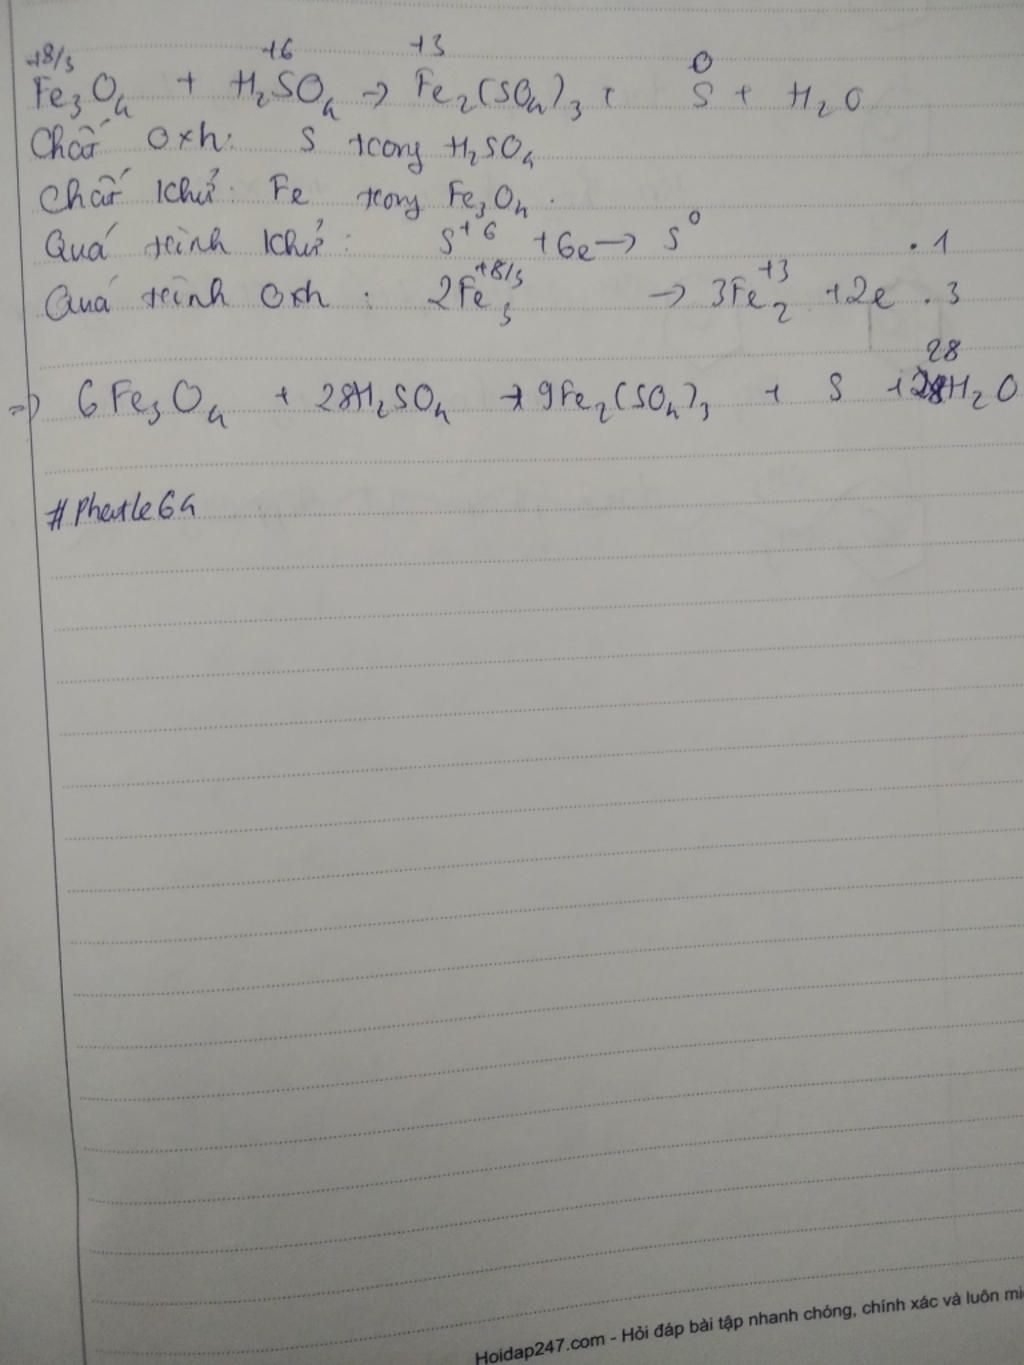 +8/3 +6 +3 0
Fe3O4 + H2SO4 → Fe2(SO4)3 + S + H2O
Chất Oxh: S trong H2SO4
Chất khử: Fe trong Fe3O4.
Quá trình khử: S+6 +6e → S0 . 1
Quá trình Oxh: 2Fe3+8/3 → 3Fe2+3 +2e . 3
28
⇒ 6Fe3O4 + 28H2SO4 → 9Fe2(SO4)3 + S + H2O
#Phatle64
Hoidap247.com - Hỏi đáp bài tập nhanh chóng, chính xác và luôn mi